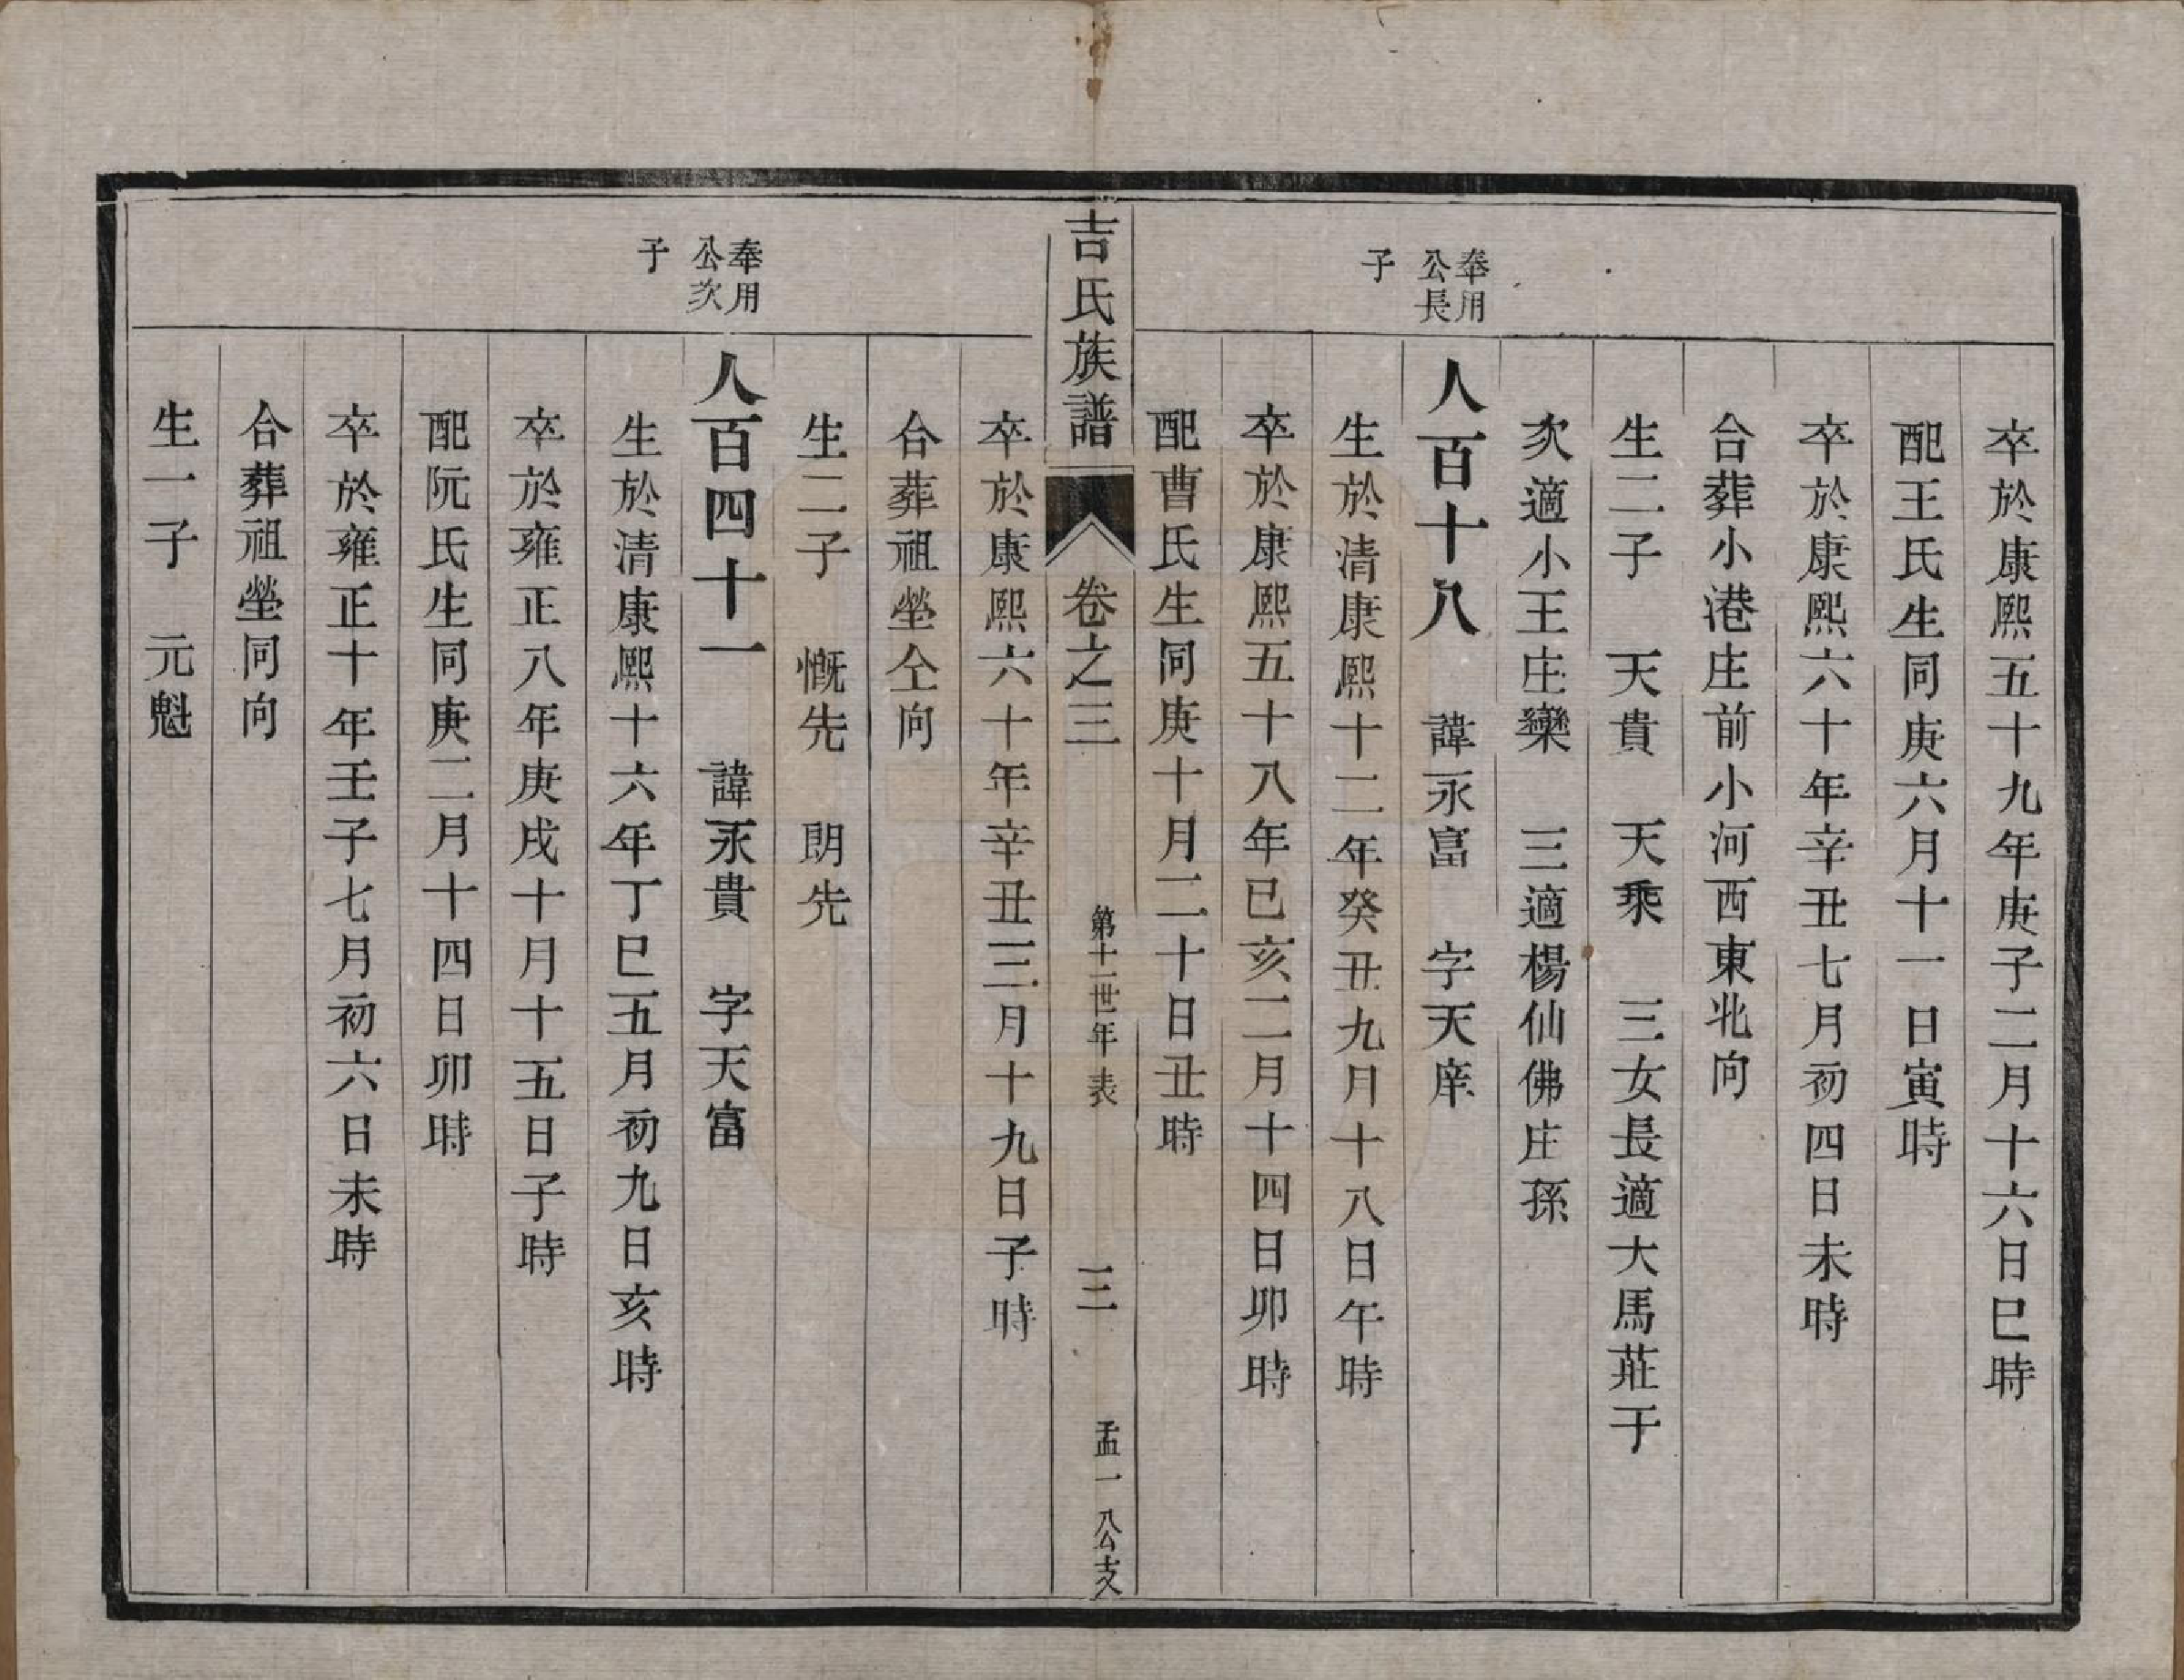 卒於康熙五十九年庚子二月十六日巳時
配王氏生同庚六月十一日寅時
卒於康熙六十年辛丑七月初四日未時
合葬小港庄前小河西東北向
生二子 天貴 天乘 三女長適大馬莊于
次適小王庄欒 三適楊仙佛庄孫
奉用
公長
子
人百十八 諱永富 字天庠
生於清康熙十二年癸丑九月十八日午時
卒於康熙五十八年已亥二月十四日卯時
配曹氏生同庚十月二十日丑時
吉氏族譜 卷之三 第十一世年表 三 孟一公支
卒於康熙六十年辛丑三月十九日子時
合葬祖塋仝向
生二子 慨先 朗先
奉用
公次
子
人百四十一 諱永貴 字天富
生於清康熙十六年丁巳五月初九日亥時
卒於雍正八年庚戌十月十五日子時
配阮氏生同庚二月十四日卯時
卒於雍正十年壬子七月初六日未時
合葬祖塋同向
生一子 元魁